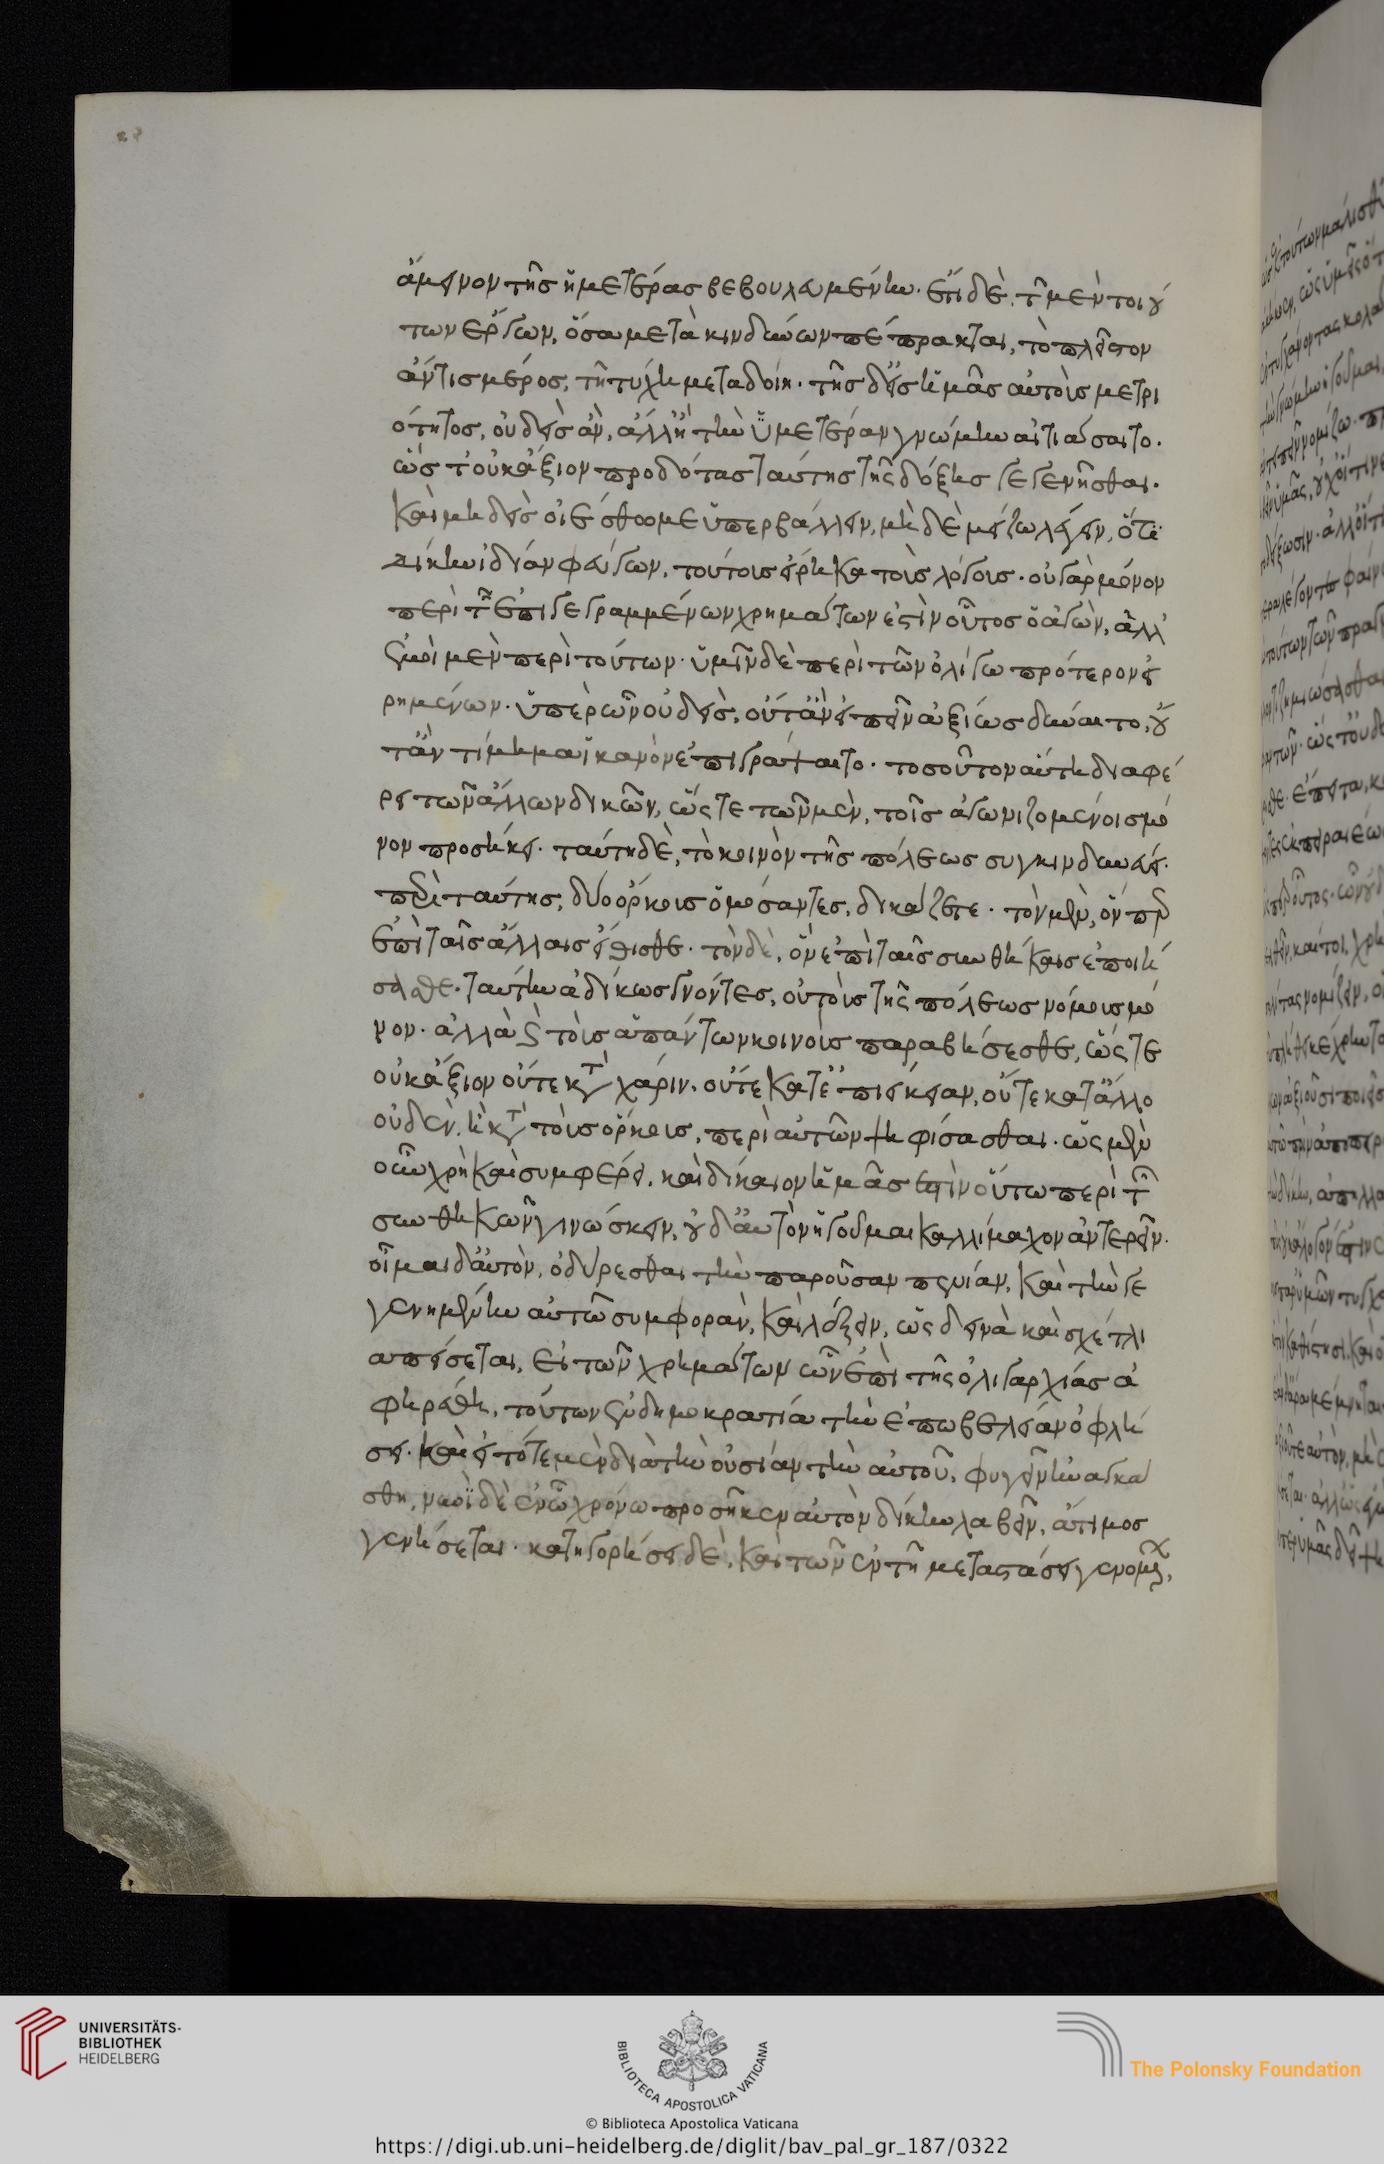 ἄμεινον τῆς ἡμετέρας βεβουλευμένην. ἔτι δὲ, τῶν μέντοι γ
των ἔργων, ὅσα μετὰ κινδύνων πέπρακται, τὸ πλεῖστον
ἄν τις μέρος, τῆ τύχη μεταδοίη. τῆς δ' εἰς ἡμᾶς αὐτοὺς μετρι
ότητος, οὐδεὶς ἂν, ἀλλ' ἢ τὴν ὑμετέραν γνώμην αἰτιάσαιτο.
ὥς τ' οὐκ ἄξιον προδότας ταύτης τῆς δόξης γεγενῆσθαι.
καὶ μηδεὶς οἰέσθω με ὑπερβάλλειν, μὴ δὲ μείζω λέγειν, ὅτι
δίκην ἰδίαν φεύγων, τούτους εἴρηκα τοὺς λόγους. οὐ γὰρ μόνον
περὶ τῶν ἐπιγεγραμμένων χρημάτων ἐστὶν οὗτος ὁ ἀγὼν, ἀλλ'
ἐμοὶ μὲν περὶ τούτων. ὑμῖν δὲ περὶ τῶν ὀλίγω πρότερον εἰ
ρημένων. ὑπὲρ ὧν οὐδεὶς, οὔτ' ἂν εἰπεῖν ἀξίως δύναιτο, οὔ
τ' ἂν τίμημα ἱκανὸν ἐπιγράψαιτο. τοσοῦτον αὕτη διαφέ
ρει τῶν ἄλλων δικῶν, ὥς τε τῶν μὲν, τοῖς ἀγωνιζομένοις μό
νον προσήκει. ταύτη δὲ, τὸ κοινὸν τῆς πόλεως συγκινδυνεύει.
περὶ ταύτης, δύο ὅρκους ὀμόσαντες, δικάζετε. τὸν μὲν, ὅν περ
ἐπὶ ταῖς ἄλλαις εἴθισθε. τὸν δὲ, ὃν ἐπὶ ταῖς συνθήκαις ἐποιή
σασθε. ταύτην ἀδίκως γνόντες, οὐ τοὺς τῆς πόλεως νόμους μό
νον. ἀλλὰ καὶ τοὺς ἁπάντων κοινοὺς παραβήσεσθε, ὥς τε
οὐκ ἄξιον οὔτε κατὰ χάριν. οὔτε κατ' ἐπιείκειαν, οὔτε κατ' ἄλλο
οὐδὲν, ἢ κατὰ τοὺς ὅρκους, περὶ αὐτῶν ψηφίσασθαι. ὡς μὲν
οὖν χρὴ καὶ συμφέρει, καὶ δίκαιον ἡμᾶς ἐστὶν οὕτω περὶ τῶν
συνθηκῶν γινώσκειν, οὐδ' αὐτὸν ἡγοῦμαι Καλλίμαχον ἀντερεῖν.
οἶμαι δ' αὐτὸν, ὀδύρεσθαι τὴν παροῦσαν πενίαν, καὶ τὴν γε
γενημένην αὐτῶ συμφορὰν, καὶ λέξειν, ὡς δεινὰ καὶ σχέτλι
α πείσεται, εἰ τῶν χρημάτων ὧν ἐπὶ τῆς ὀλιγαρχίας ἀ
φηρέθη, τούτων ἐν δημοκρατία τὴν ἐπωβελείαν ὀφλή
σει. καὶ εἰ τότε μὲν διὰ τὴν οὐσίαν τὴν αὐτοῦ, φυγεῖν ἠναγκά
σθη, νυνὶ δὲ ἐν ὧ χρόνω προσῆκεν αὐτὸν δίκην λαβεῖν, ἄτιμος
γενήσεται. κατηγορήσει δὲ, καὶ τῶν ἐν τῆ μεταστάσει γενομένων,
UNIVERSITÄTS-
BIBLIOTHEK
HEIDELBERG
BIBLIOTECA APOSTOLICA VATICANA
The Polonsky Foundation
© Biblioteca Apostolica Vaticana
https://digi.ub.uni-heidelberg.de/diglit/bav_pal_gr_187/0322